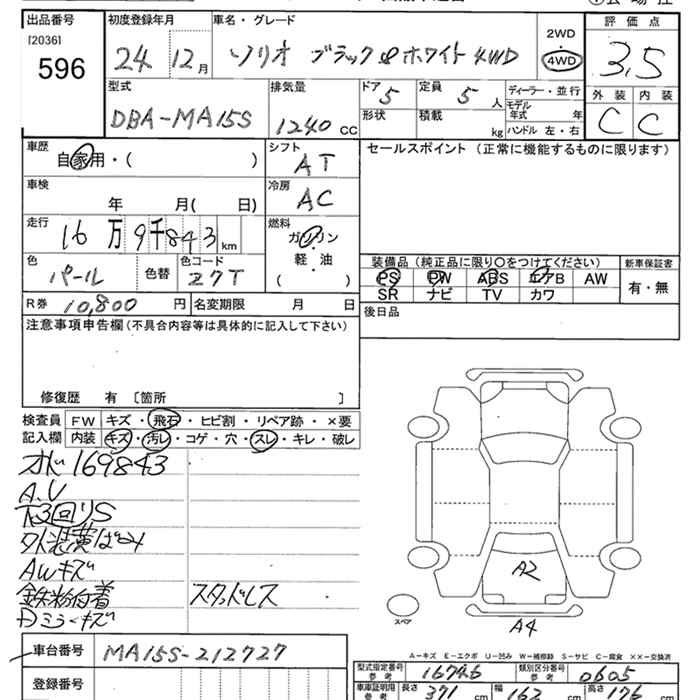 出品番号 初度登録年月 車名・グレード 評価点
[2036]
596
24年 12月 ソリオ ブラック&ホワイト 4WD 2WD 4WD 3.5
型式 排気量 ドア 5 定員 5人 ディーラー・並行 外装 内装
DBA-MA15S 1240cc 形状 積載 kg モデル年式 年 C C
ハンドル 左・右
車歴 自家用・( ) シフト AT セールスポイント (正常に機能するものに限ります)
車検 年 月( 日) 冷房 AC
走行 16万9千843km 燃料 ガソリン・軽・油 ( )
色 パール 色替 色コード Z7T
装備品 (純正品に限り○をつけてください) 新車保証書
PS PW ABS エアB AW 有・無
SR ナビ TV カワ
R券 10,800円 名変期限 月 日
後日品
注意事項申告欄(不具合内容等は具体的に記入して下さい)
修復歴 有 〔箇所 〕
検査員 FW キズ・飛石・ヒビ割・リペア跡・×要
記入欄 内装 キズ・汚レ・コゲ・穴・スレ・キレ・破レ
169843
A.V
下回りS
AWキズ
鉄粉付着 スタッドレス
Dミラーキズ
A2
A4
スペア
A-キズ E-エクボ U-凹み W-補修跡 S-サビ C-腐食 ××-交換済
車台番号 MA15S-212727
型式指定番号 参考 16746 類別区分番号 参考 0605
登録番号
車庫証明用 参考 長さ 371cm 幅 162cm 高さ 176cm